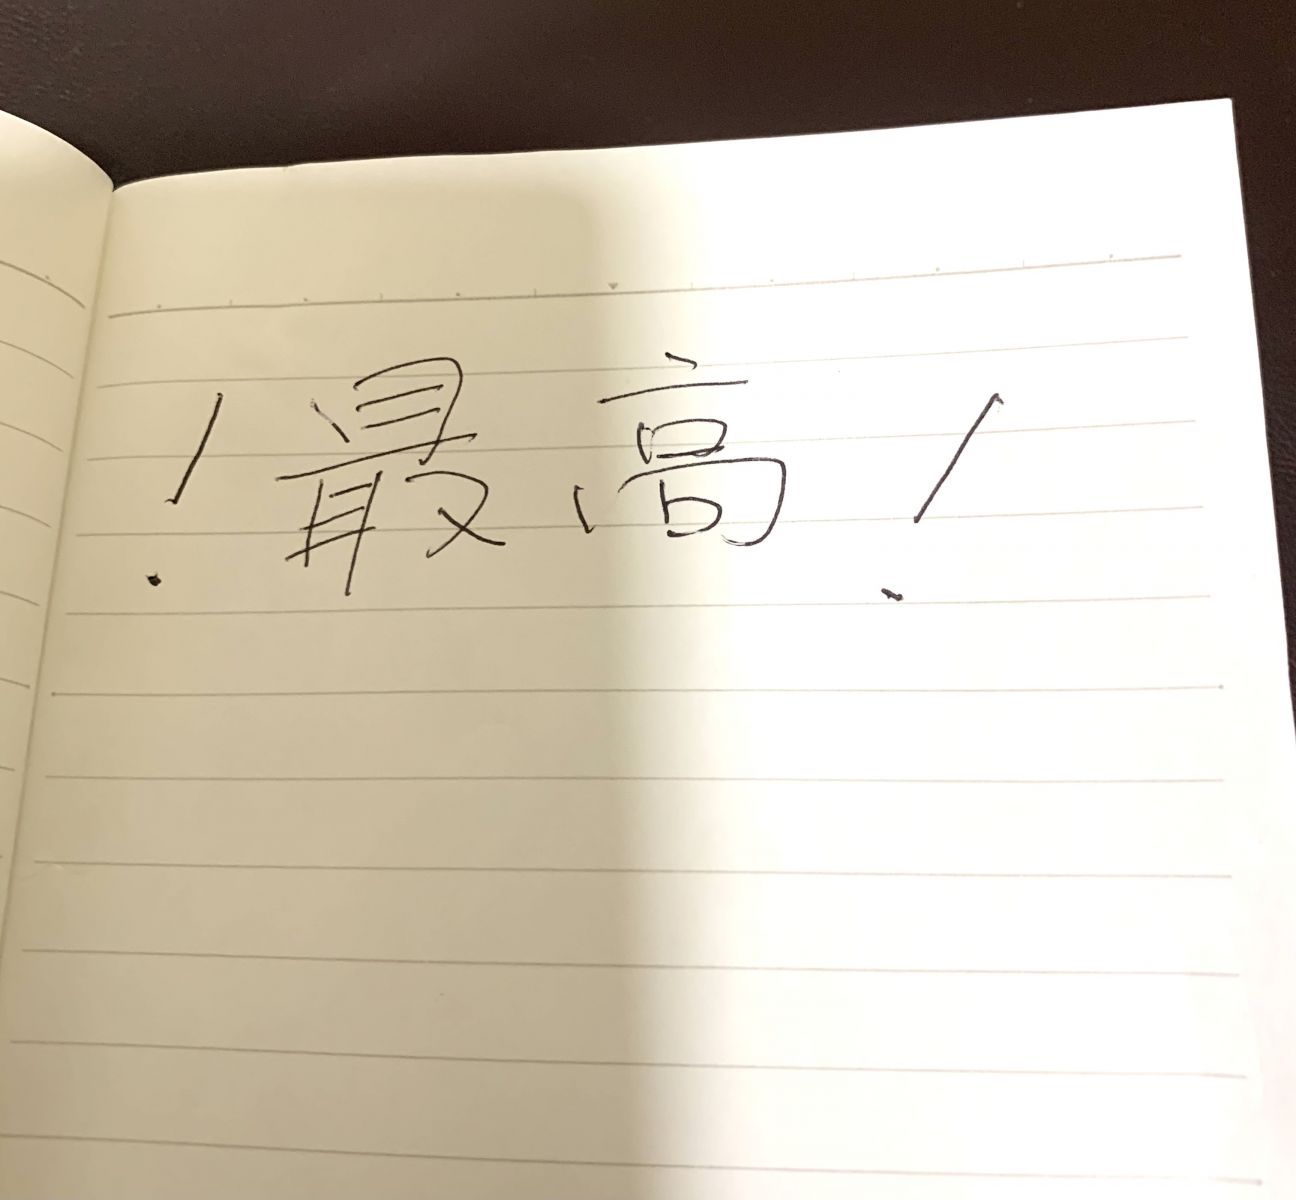 ！最高！